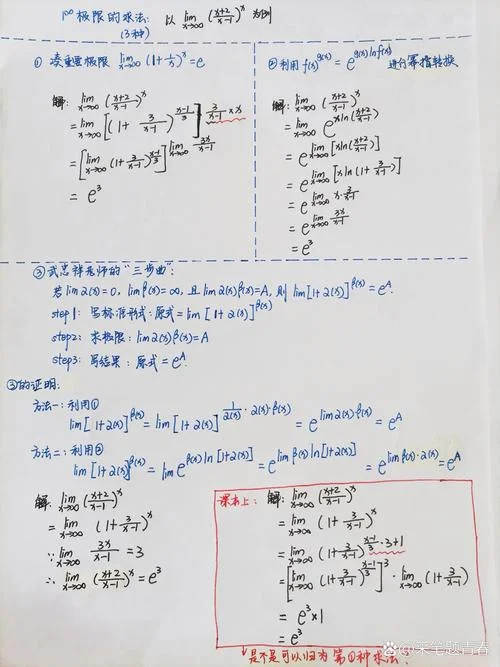 1^∞ 极限的求法: 以 lim_{x→∞} (\frac{x+2}{x-1})^x 为例
(3种)
① 凑重要极限 lim_{x→∞} (1+\frac{1}{x})^x = e
解: lim_{x→∞} (\frac{x+2}{x-1})^x
= lim_{x→∞} [(1+\frac{3}{x-1})^{\frac{x-1}{3}}]^{\frac{3}{x-1}×x}
= [lim_{x→∞} (1+\frac{3}{x-1})^{\frac{x-1}{3}}]^{lim_{x→∞} \frac{3x}{x-1}}
= e^3
② 利用 f(x)^{g(x)} = e^{g(x)lnf(x)} 进行幂指转换
解: lim_{x→∞} (\frac{x+2}{x-1})^x
= lim_{x→∞} e^{xln(\frac{x+2}{x-1})}
= e^{lim_{x→∞} [xln(\frac{x+2}{x-1})]}
= e^{lim_{x→∞} [xln(1+\frac{3}{x-1})]}
= e^{lim_{x→∞} x·\frac{3}{x-1}}
= e^{lim_{x→∞} \frac{3x}{x-1}}
= e^3
③ 武忠祥老师的"三步曲":
若 lim α(x)=0, lim β(x)=∞, 且 lim α(x)β(x)=A, 则 lim[1+α(x)]^{β(x)} = e^A.
step1: 写标准形式: 原式 = lim [1+α(x)]^{β(x)}
step2: 求极限: lim α(x)β(x) = A
step3: 写结果: 原式 = e^A.
③的证明:
方法一: 利用①
lim[1+α(x)]^{β(x)} = lim[1+α(x)]^{\frac{1}{α(x)}·α(x)·β(x)} = e^{lim α(x)·β(x)} = e^A
方法二: 利用②
lim[1+α(x)]^{β(x)} = lim e^{β(x)ln[1+α(x)]} = e^{lim β(x)ln[1+α(x)]} = e^{lim β(x)·α(x)} = e^A
解: lim_{x→∞} (\frac{x+2}{x-1})^x
= lim_{x→∞} (1+\frac{3}{x-1})^x
∵ lim_{x→∞} \frac{3x}{x-1} = 3
∴ lim_{x→∞} (\frac{x+2}{x-1})^x = e^3
课本上: 解: lim_{x→∞} (\frac{x+2}{x-1})^x
= lim_{x→∞} (1+\frac{3}{x-1})^x
= lim_{x→∞} (1+\frac{3}{x-1})^{\frac{x-1}{3}·3+1}
= [lim_{x→∞} (1+\frac{3}{x-1})^{\frac{x-1}{3}}]^3 · lim_{x→∞} (1+\frac{3}{x-1})
= e^3×1
= e^3
是不是可以归为第①种求法?